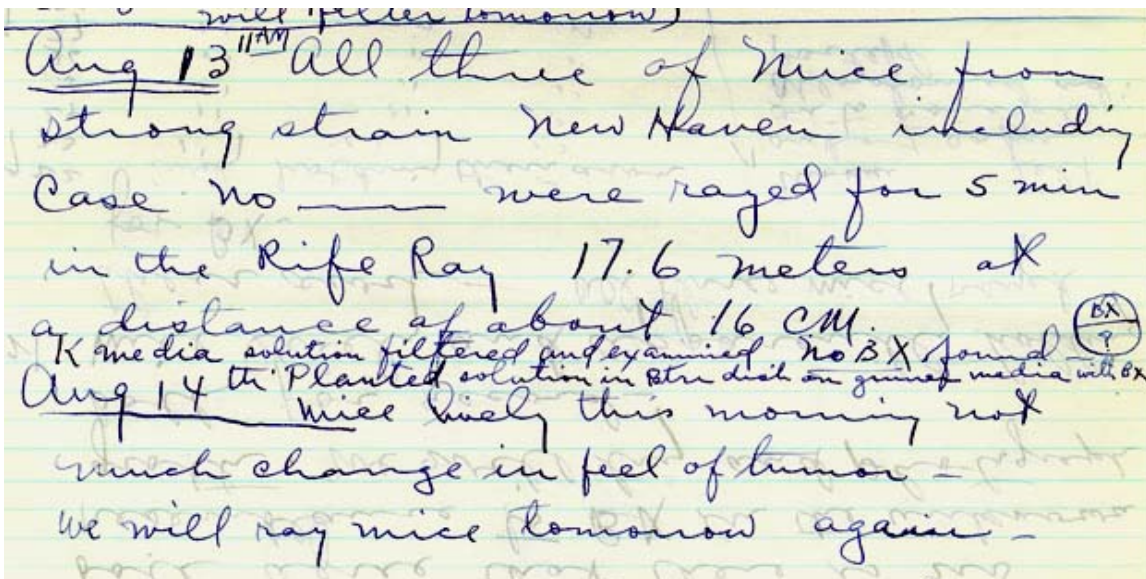 will filter tomorrow)
Aug 13 11AM All three of mice from
strong strain New Haven including
Case No ____ were rayed for 5 min
in the Rife Ray 17.6 meters at
a distance of about 16 CM.
K media solution filtered and examined no BX found BX ?
Aug 14 th Planted solution in dish on media with BX
mice lively this morning not
much change in feel of tumor -
we will ray mice tomorrow again -